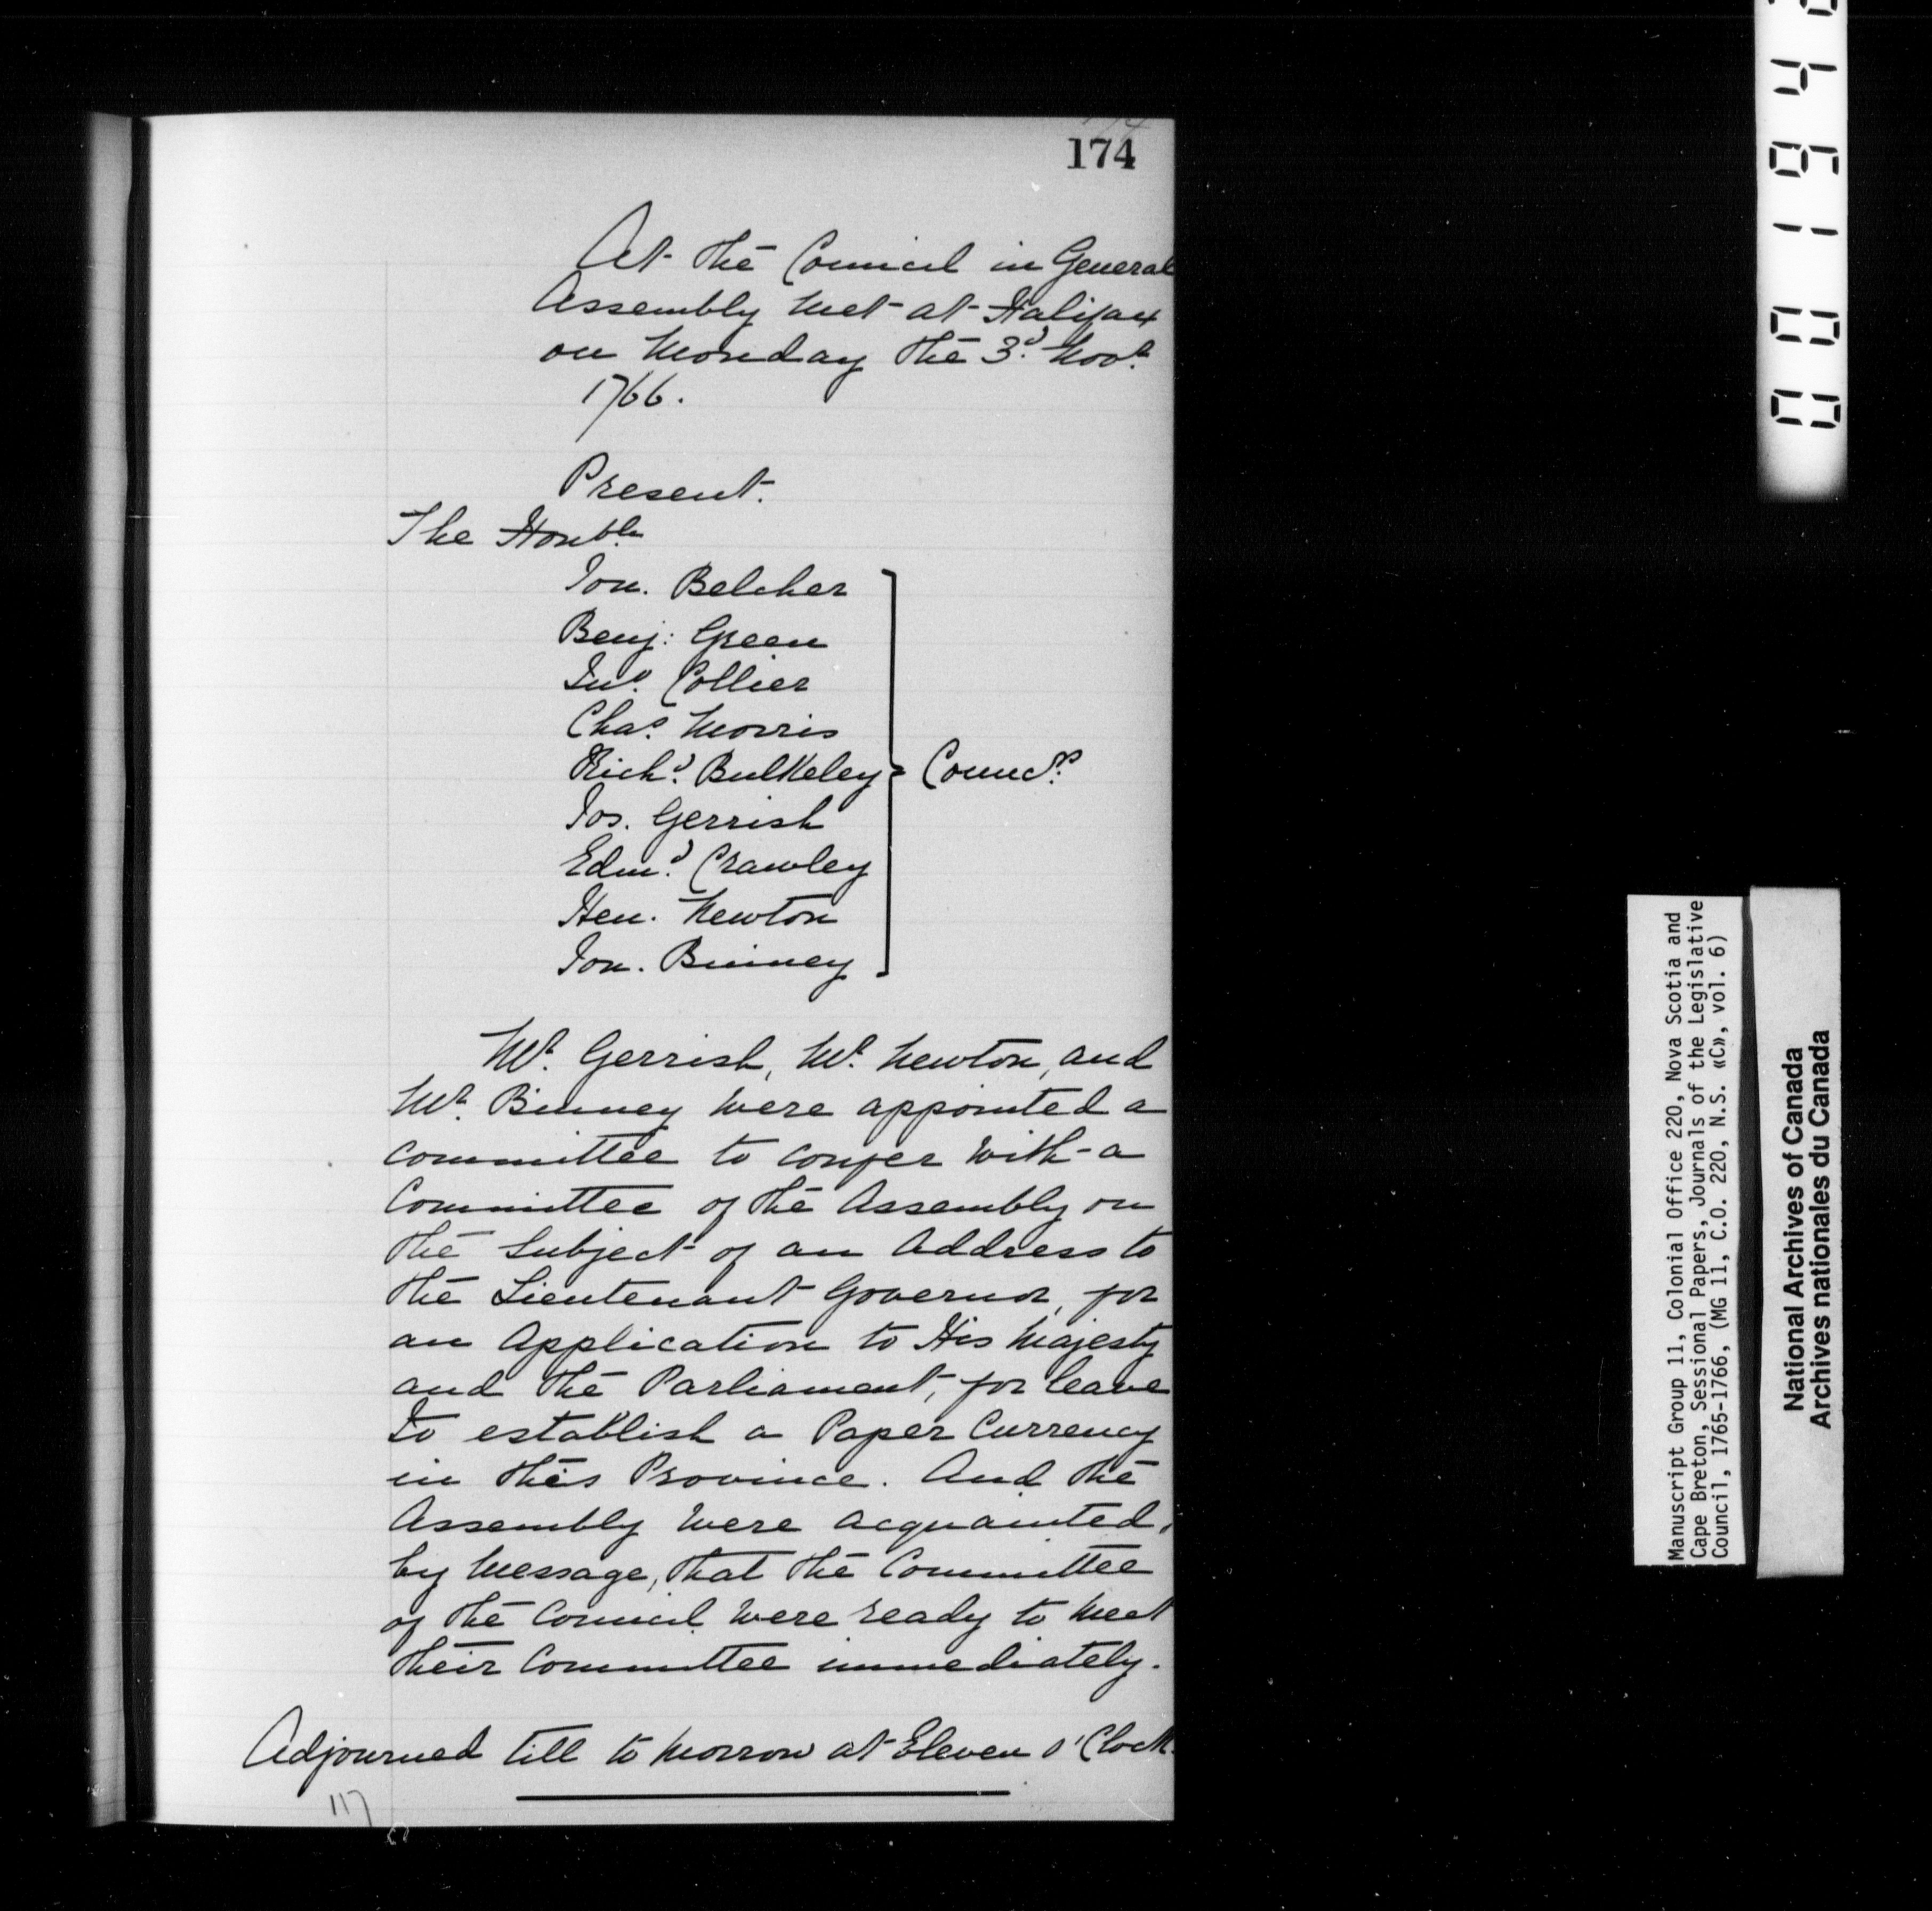 174
At the Council in General
Assembly met at Halifax
on Monday the 3.d Novr.
1766.
Present.
The Honble
Jon. Belcher
Benj: Green
Jno. Collier
Chas. Morris
Richd. Bulkeley
Jos. Gerrish
Edmd. Crawley
Hen. Newton
Jon. Binney
Councrs.
Mr. Gerrish, Mr. Newton, and
Mr. Binney were appointed a
Committee to confer with a
Committee of the Assembly on
the Subject of an Address to
the Lieutenant Governor, for
an Application to His Majesty
and the Parliament, for leave
to establish a Paper Currency
in this Province. And the
Assembly were acquainted,
by Message, that the Committee
of the Council were ready to meet
their Committee immediately.
Adjourned till to morrow at Eleven o'Clock.
117
Manuscript Group 11, Colonial Office 220, Nova Scotia and
Cape Breton, Sessional Papers, Journals of the Legislative
Council, 1765-1766, (MG 11, C.O. 220, N.S. «C», vol. 6)
National Archives of Canada
Archives nationales du Canada